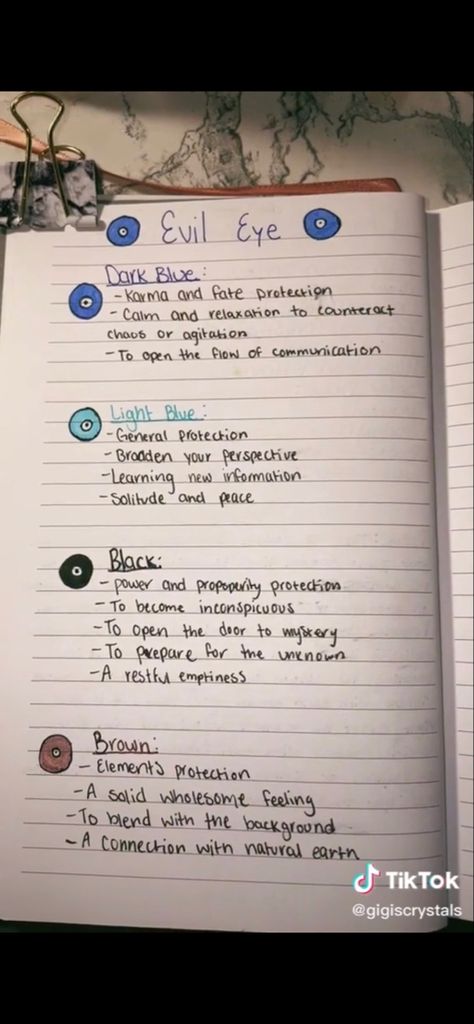 Evil Eye
Dark Blue:
- Karma and fate protection
- Calm and relaxation to counteract
chaos or agitation
- To open the flow of communication
Light Blue:
- General protection
- Broaden your perspective
- Learning new information
- Solitude and peace
Black:
- power and propoperity protection
- To become inconspicuous
- To open the door to mystery
- To prepare for the unknown
- A restful emptiness
Brown:
- Elements protection
- A solid wholesome feeling
- To blend with the background
- A connection with natural earth
TikTok
@gigiscrystals